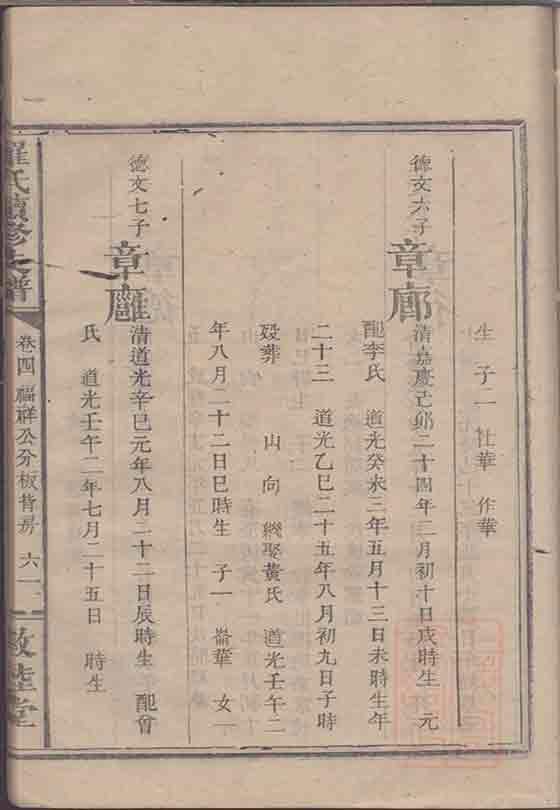 生 子二 社華 作華
德文六子
章廊 清嘉慶己卯二十四年二月初十日戌時生 元
配李氏 道光癸未三年五月十三日未時生年
二十三 道光乙巳二十五年八月初九日子時
歿葬 山 向 繼娶黃氏 道光壬午二
年八月二十二日巳時生 子一 崙華 女一
德文七子
章廱 清道光辛巳元年八月二十二日辰時生 配曾
氏 道光壬午二年七月二十五日 時生
羅氏續修支譜 卷四 福祥公分板背房 六一 敦睦堂